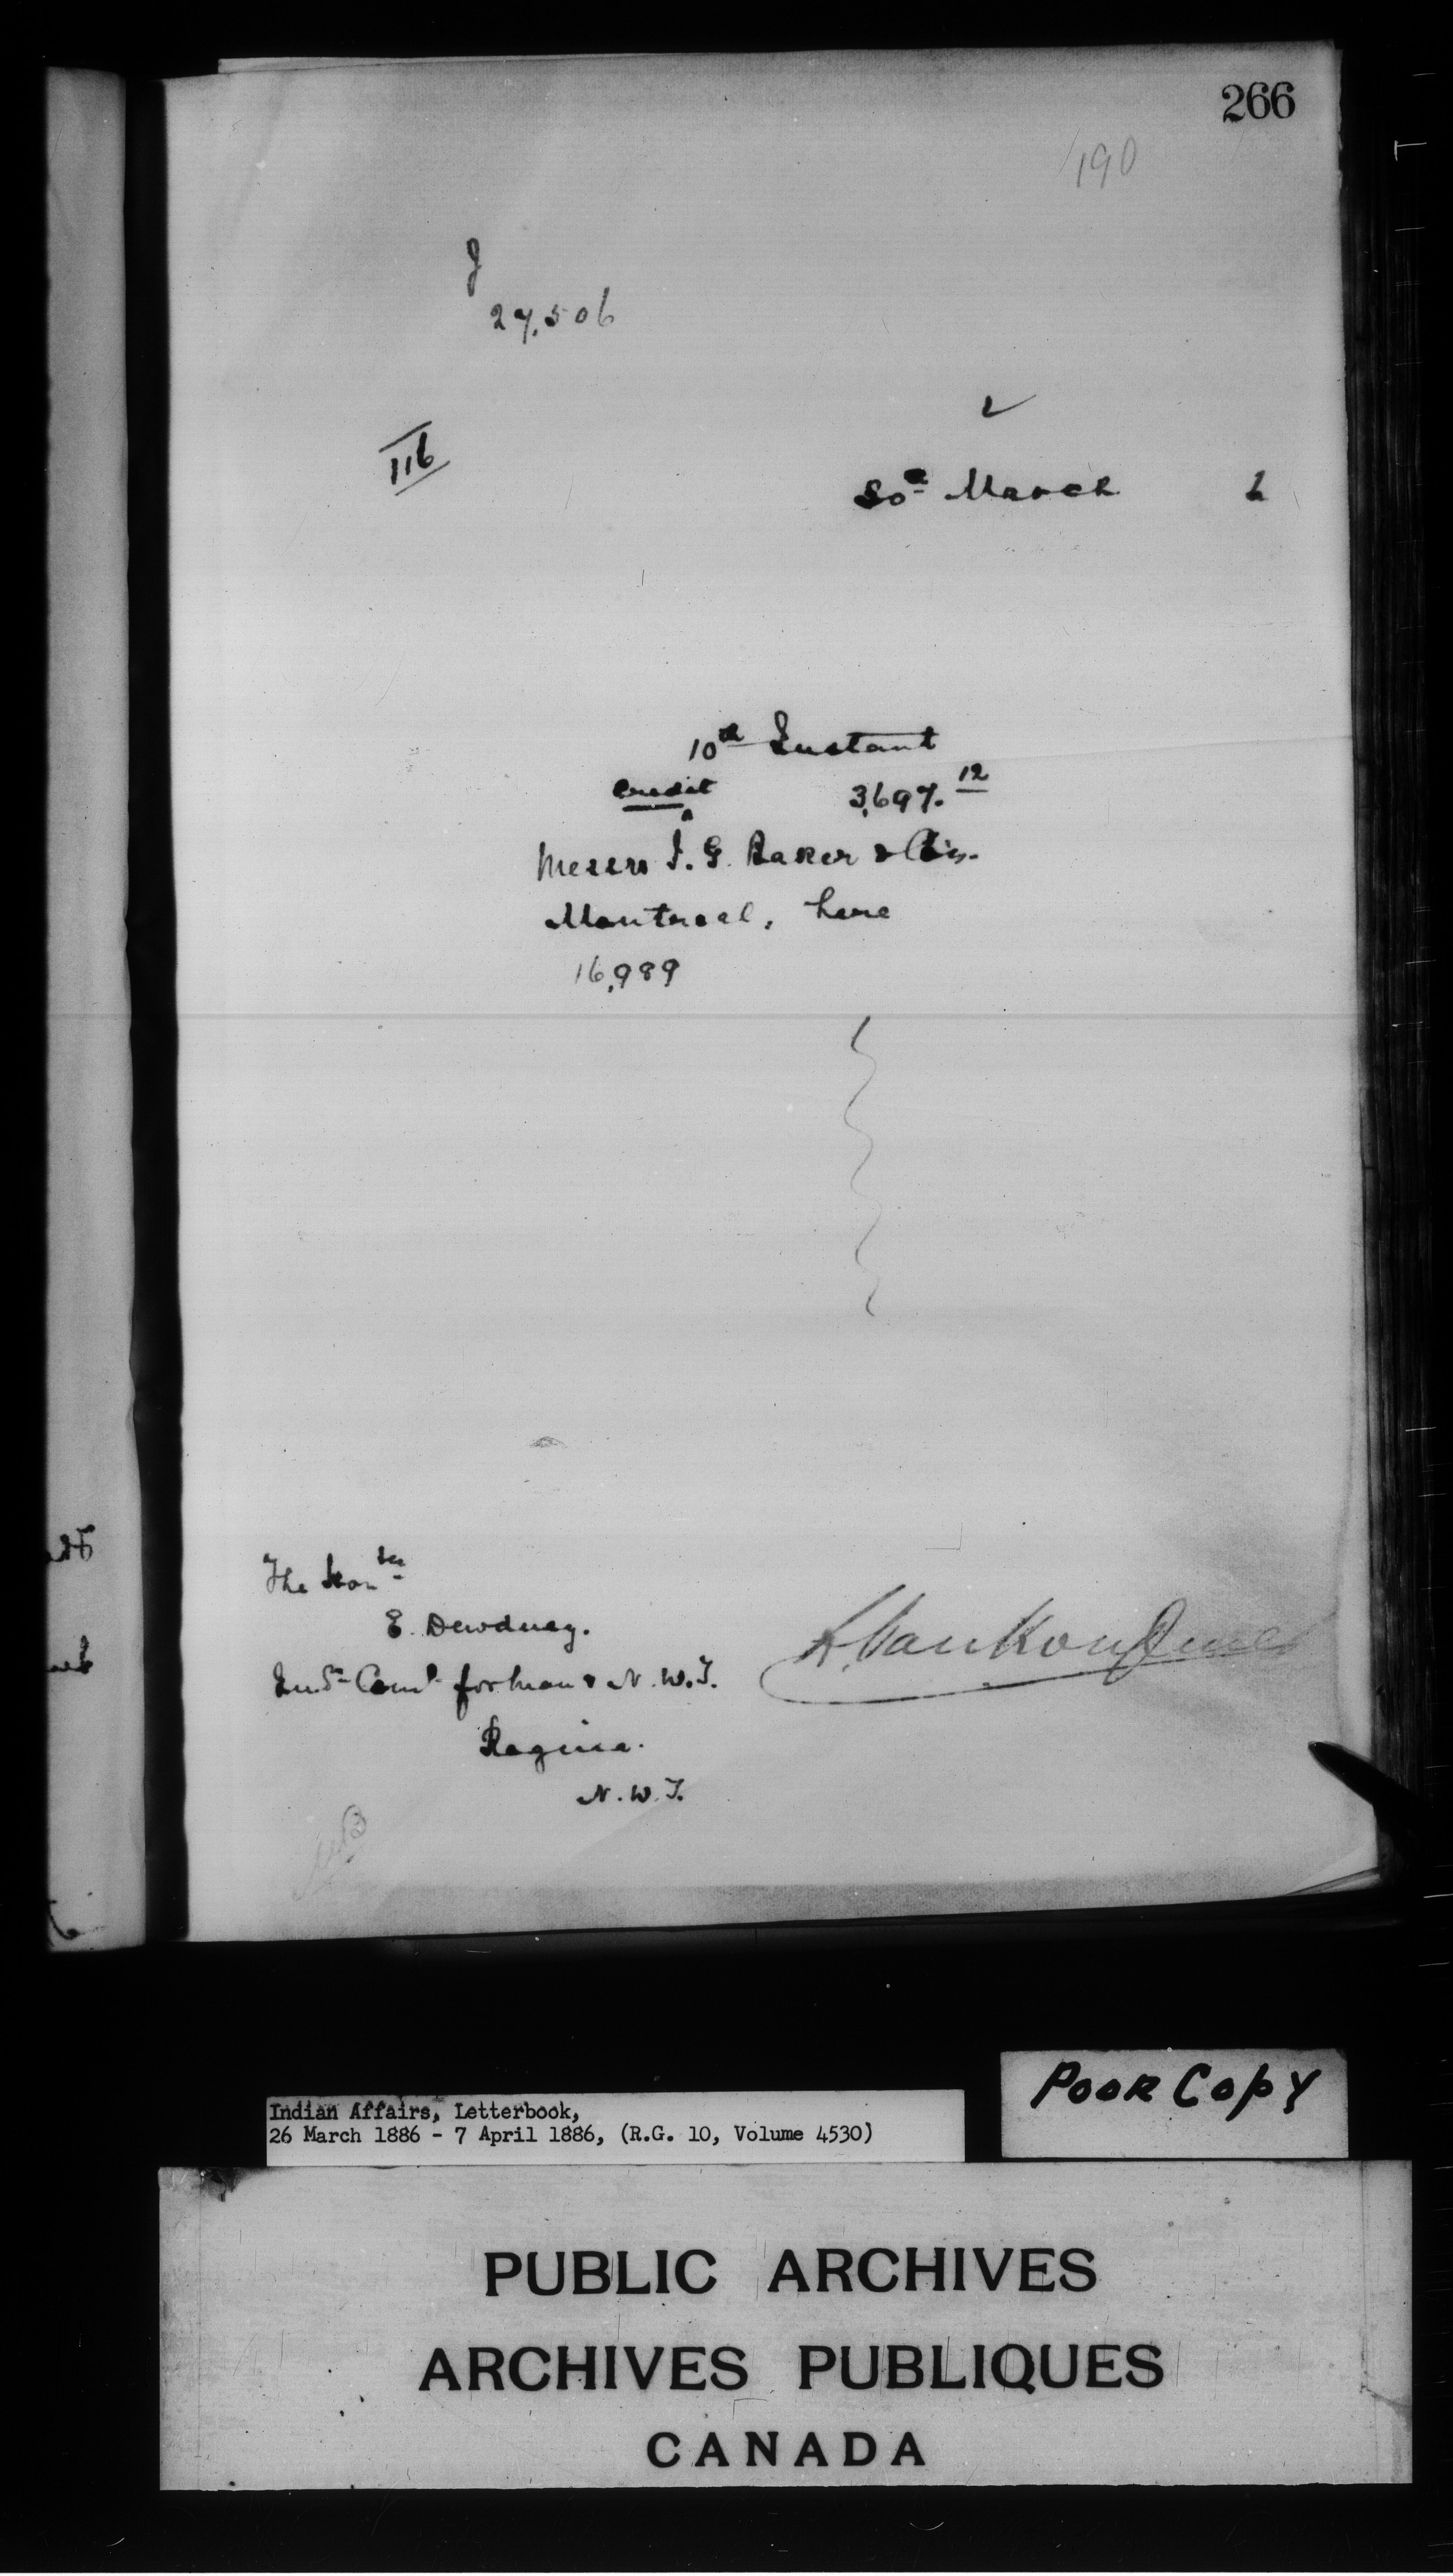 266
190
J
27,506
116
30th March 6
10th Instant
Credit 3,697.12
Messrs I. G. Baker & Co's.
Montreal, here
16,989
The Honble
E. Dewdney.
Indn Comr for Man & N.W.T.
Regina.
N.W.T.
L. VanKoughnet
Poor Copy
Indian Affairs, Letterbook,
26 March 1886 - 7 April 1886, (R.G. 10, Volume 4530)
PUBLIC ARCHIVES
ARCHIVES PUBLIQUES
CANADA